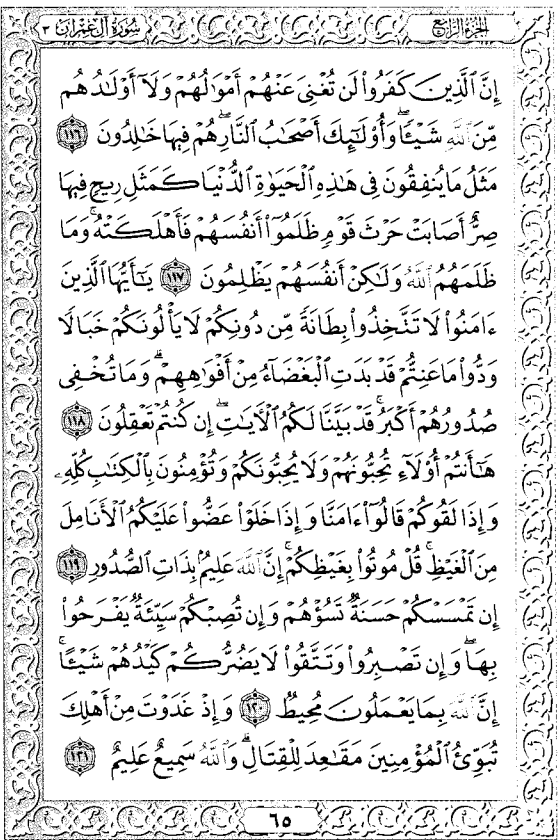 سُورَةُ آلِ عِمْرَان ٣
الجزء الرابع
إِنَّ ٱلَّذِينَ كَفَرُوا۟ لَن تُغْنِىَ عَنْهُمْ أَمْوَٰلُهُمْ وَلَآ أَوْلَٰدُهُم
مِّنَ ٱللَّهِ شَيْـًٔا ۖ وَأُو۟لَٰٓئِكَ أَصْحَٰبُ ٱلنَّارِ ۚ هُمْ فِيهَا خَٰلِدُونَ ١١٦
مَثَلُ مَا يُنفِقُونَ فِى هَٰذِهِ ٱلْحَيَوٰةِ ٱلدُّنْيَا كَمَثَلِ رِيحٍ فِيهَا
صِرٌّ أَصَابَتْ حَرْثَ قَوْمٍ ظَلَمُوٓا۟ أَنفُسَهُمْ فَأَهْلَكَتْهُ ۚ وَمَا
ظَلَمَهُمُ ٱللَّهُ وَلَٰكِنْ أَنفُسَهُمْ يَظْلِمُونَ ١١٧ يَٰٓأَيُّهَا ٱلَّذِينَ
ءَامَنُوا۟ لَا تَتَّخِذُوا۟ بِطَانَةً مِّن دُونِكُمْ لَا يَأْلُونَكُمْ خَبَالًا
وَدُّوا۟ مَا عَنِتُّمْ قَدْ بَدَتِ ٱلْبَغْضَآءُ مِنْ أَفْوَٰهِهِمْ وَمَا تُخْفِى
صُدُورُهُمْ أَكْبَرُ ۚ قَدْ بَيَّنَّا لَكُمُ ٱلْءَايَٰتِ ۖ إِن كُنتُمْ تَعْقِلُونَ ١١٨
هَٰٓأَنتُمْ أُو۟لَآءِ تُحِبُّونَهُمْ وَلَا يُحِبُّونَكُمْ وَتُؤْمِنُونَ بِٱلْكِتَٰبِ كُلِّهِۦ
وَإِذَا لَقُوكُمْ قَالُوٓا۟ ءَامَنَّا وَإِذَا خَلَوْا۟ عَضُّوا۟ عَلَيْكُمُ ٱلْأَنَامِلَ
مِنَ ٱلْغَيْظِ ۚ قُلْ مُوتُوا۟ بِغَيْظِكُمْ ۗ إِنَّ ٱللَّهَ عَلِيمٌۢ بِذَاتِ ٱلصُّدُورِ ١١٩
إِن تَمْسَسْكُمْ حَسَنَةٌ تَسُؤْهُمْ وَإِن تُصِبْكُمْ سَيِّئَةٌ يَفْرَحُوا۟
بِهَا ۖ وَإِن تَصْبِرُوا۟ وَتَتَّقُوا۟ لَا يَضُرُّكُمْ كَيْدُهُمْ شَيْـًٔا ۗ
إِنَّ ٱللَّهَ بِمَا يَعْمَلُونَ مُحِيطٌ ١٢٠ وَإِذْ غَدَوْتَ مِنْ أَهْلِكَ
تُبَوِّئُ ٱلْمُؤْمِنِينَ مَقَٰعِدَ لِلْقِتَالِ ۗ وَٱللَّهُ سَمِيعٌ عَلِيمٌ ١٢١
٦٥